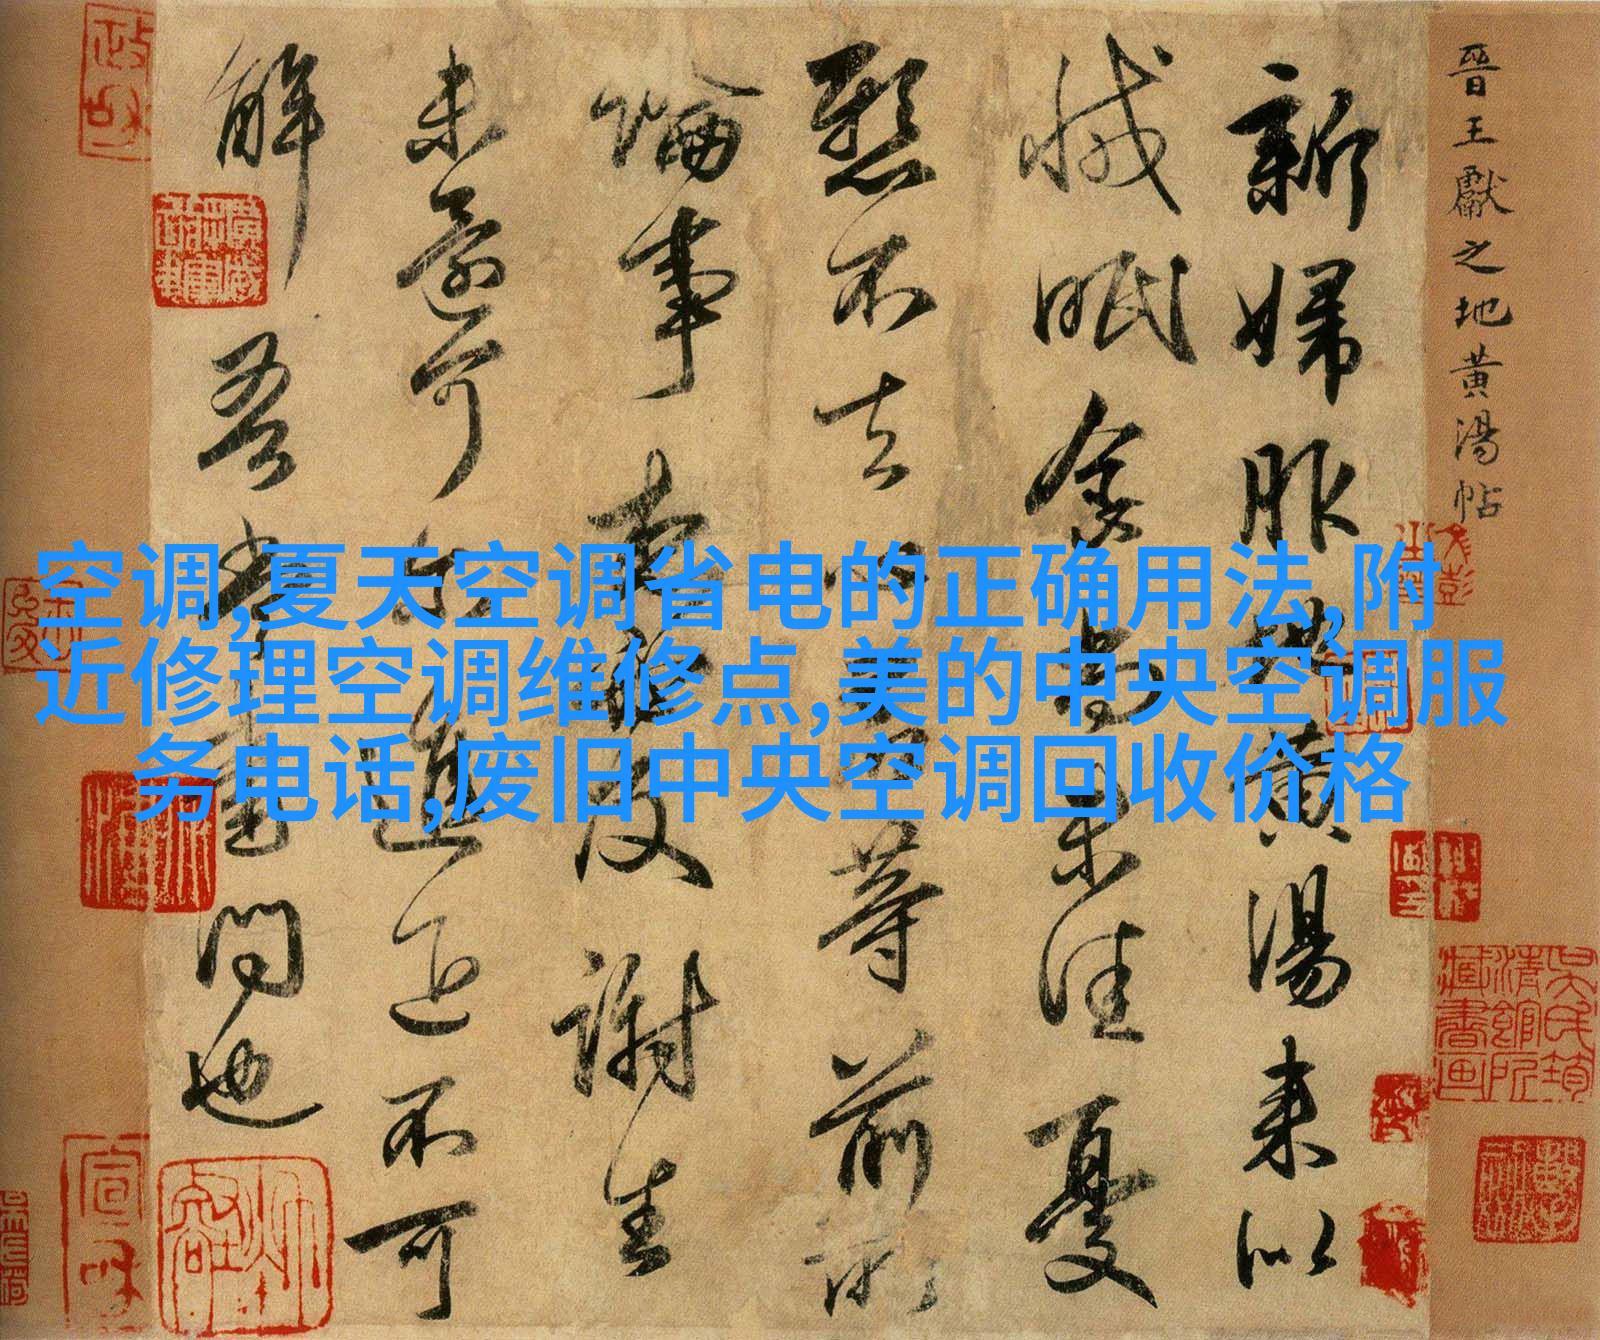 晉王獻之地黄湯帖
新婦服地黄湯来似
減眠食尚未佳憂
懸不去心君等前所
論事想必及謝生
未還可尔進退不可
解吾當書問也
空调,夏天空调省电的正确用法,附
近修理空调维修点,美的中央空调服
务电话,废旧中央空调回收价格